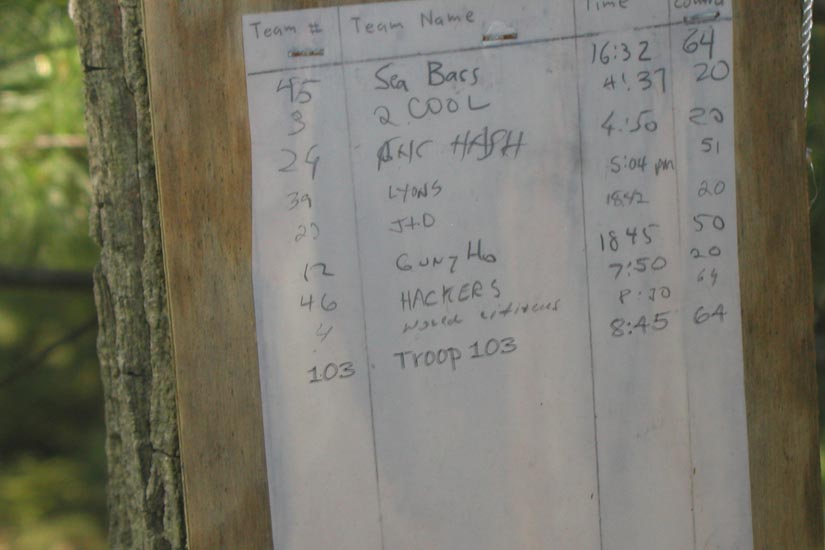 Team # Team Name Time
45 Sea Bass 16:32 64
3 2 COOL 4:37 20
24 HASH 4:50 20
39 LYONS 5:04 pm 51
J+D 1842 20
12 Gung Ho 1845 50
46 HACKERS 7:50 20
4 World citizens 8:30 64
103 Troop 103 8:45 64